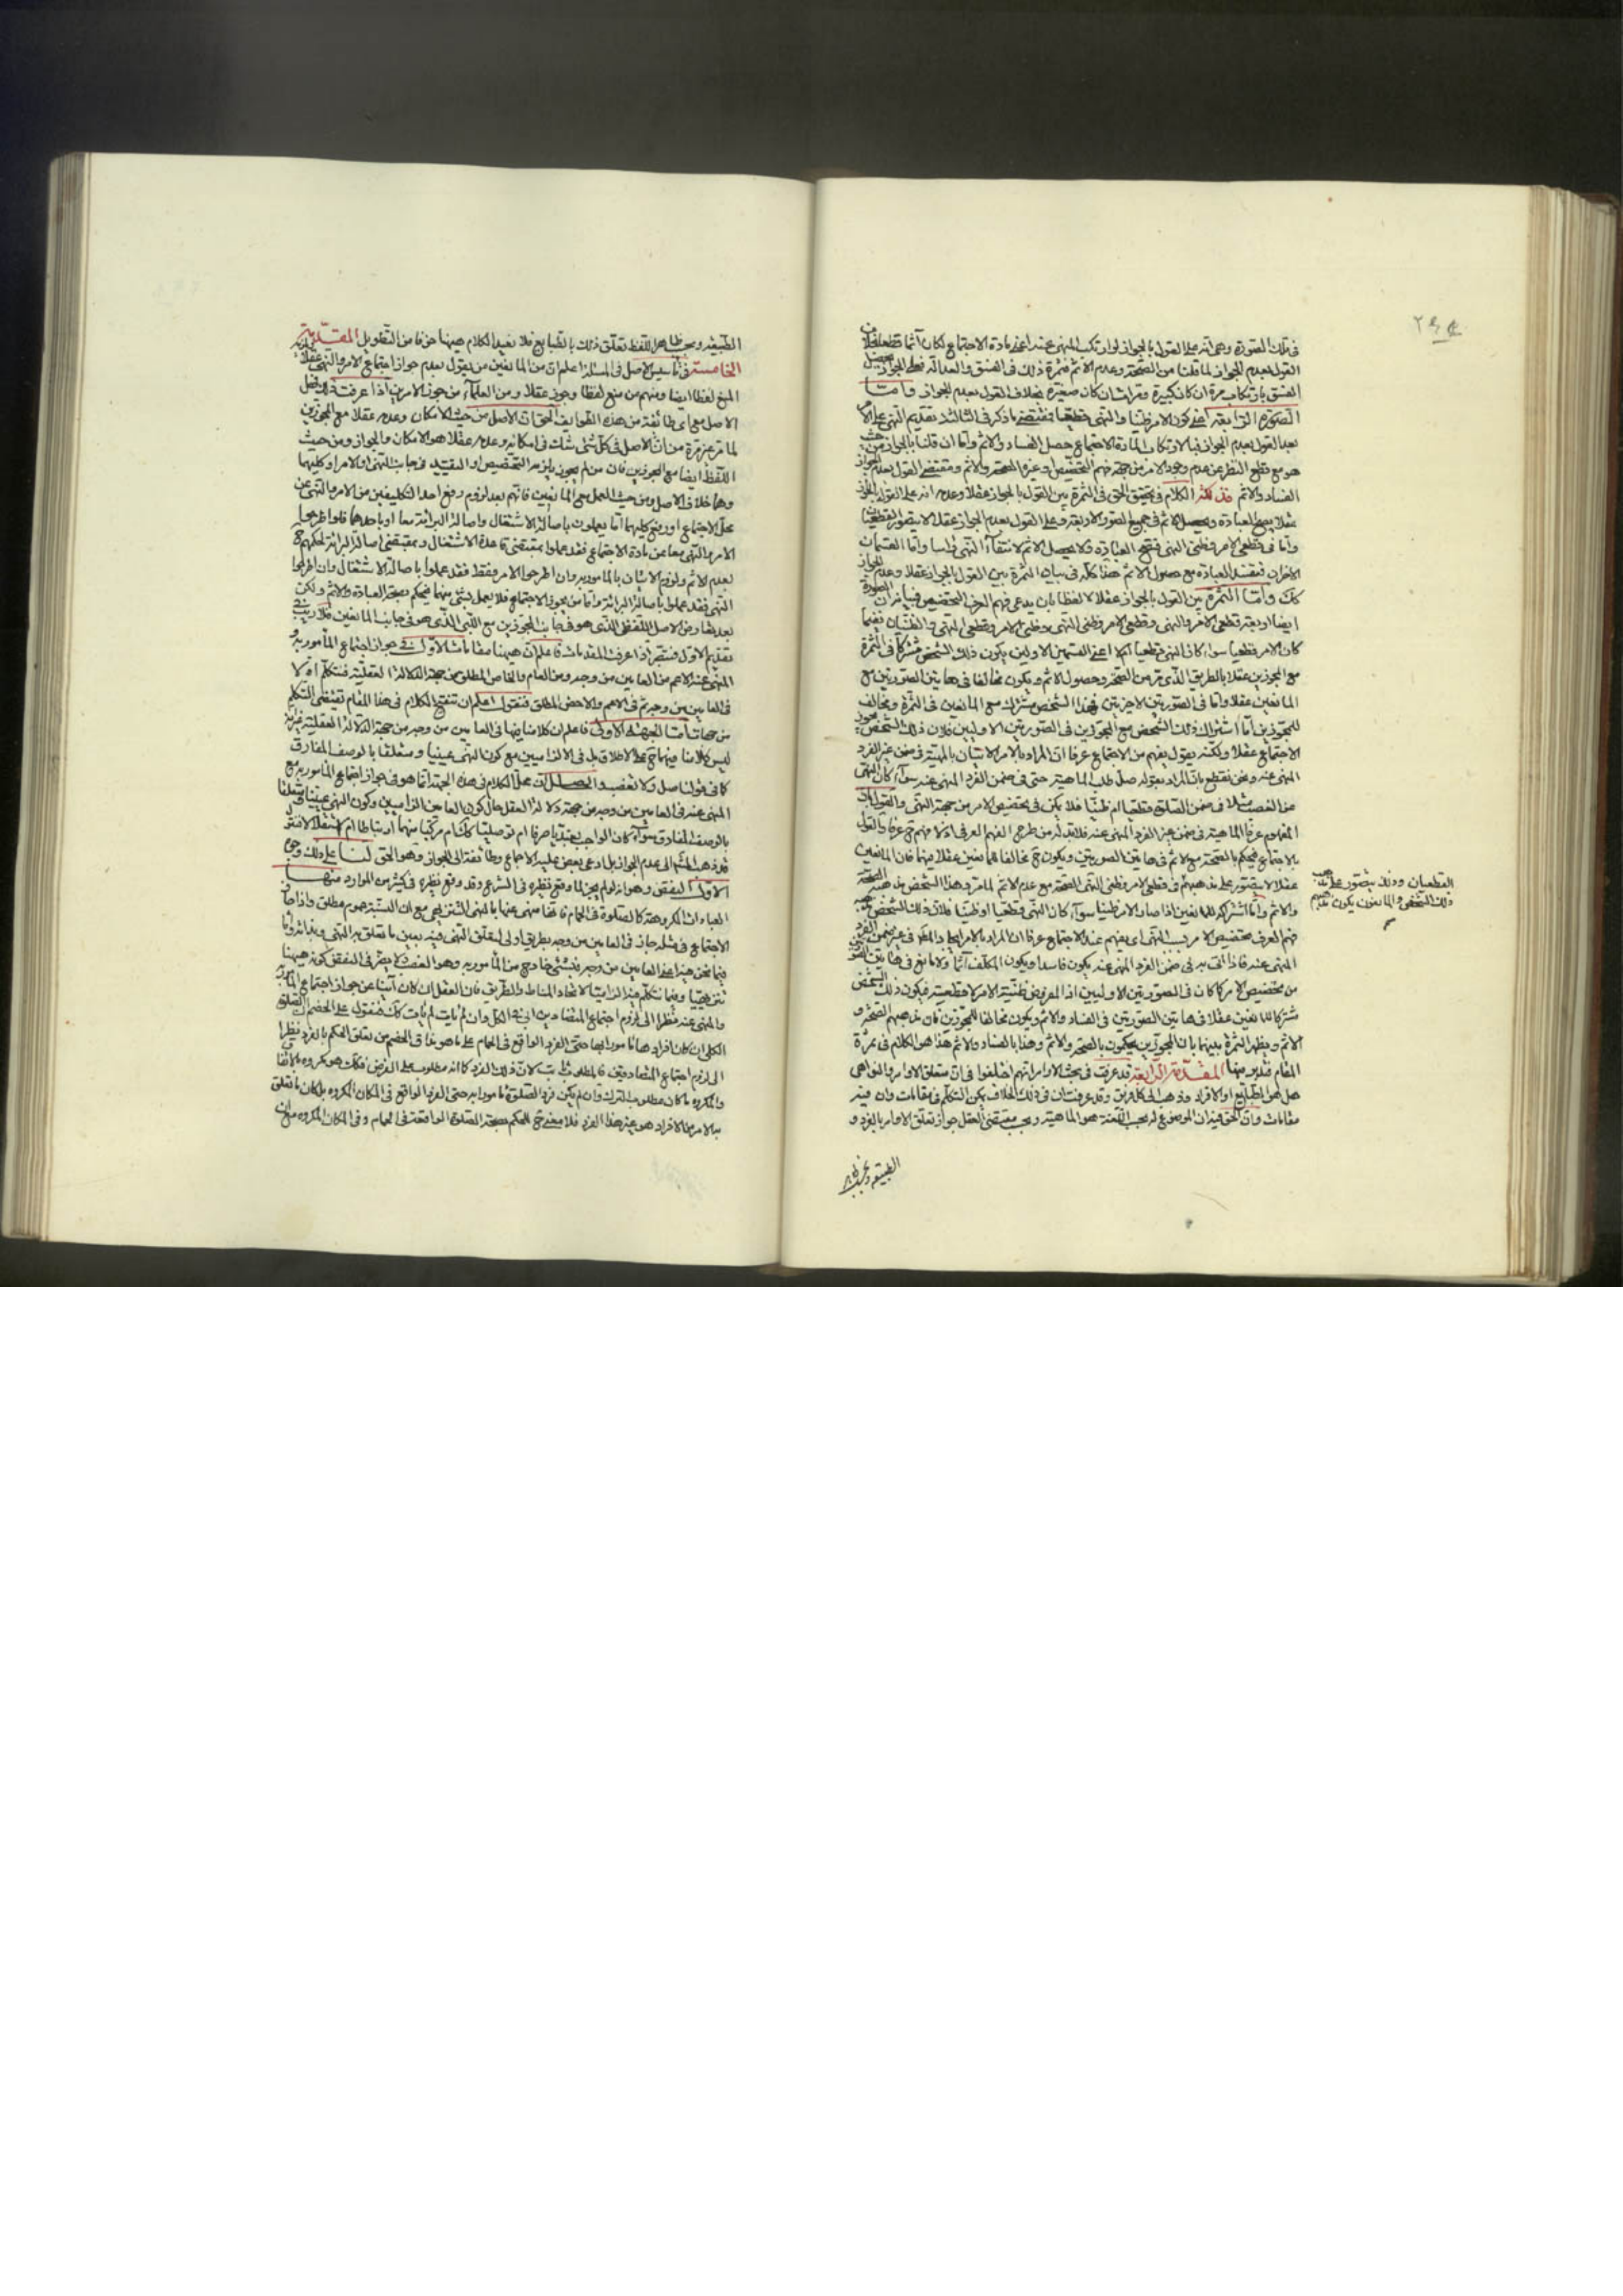 في تلك الصورة وهي انه على القول بالجواز لو ارتكب المنهي عنه اعني مادة الاجتماع لكان آثما قطعا
القول بعدم الجواز لما قلنا من الصحة وعدم الاثم فثمرة ذلك في الفسق والعدالة فعلى الجواز يحصل
الفسق بارتكابه مرة ان كان كبيرة ومرات ان كان صغيرة بخلاف القول بعدم الجواز واما
الصورة الرابعة اعني كون الامر ظنيا والنهي قطعيا فمقتضى ما ذكر في الثالثة تقديم النهي على الامر
بعد القول بعدم الجواز فبالارتكاب لمادة الاجتماع حصل الفساد والاثم واما ان قلنا بالجواز من حيث
هو مع قطع النظر عن عدم وجود الامر من جهة فهم التخصيص وغيره الصحة والاثم ومقتضى القول بعدم الجواز
الفساد والاثم فذلكة الكلام في تحقيق الحق في الثمرة بين القول بالجواز عقلا وعدمه انه على القول بالجواز
عقلا يصح العبادة ويحصل الاثم في جميع الصور الاربعة وعلى القول بعدم الجواز عقلا لا يتصور القطعيان
واما في قطعي الامر وظني النهي فتصح العبادة ولا يحصل الاثم لانتفاء النهي راسا واما القسمان
الاخران فتفسد العبادة مع حصول الاثم هذا كله في بيان الثمرة بين القول بالجواز عقلا وعدم الجواز
كك واما الثمرة بين القول بالجواز عقلا لا لفظا بان يدعى فهم العرف التخصيص فبيانه ان الصورة
ايضا اربعة قطعي الامر والنهي وقطعي الامر وظني النهي وظني الامر وقطعي النهي والظنيان ففيما
كان الامر قطعيا سواء كان النهي قطعيا ام لا اعني القسمين الاولين يكون ذلك الشخص مشتركا في الثمرة
مع المجوزين عقلا بالطريق الذي مر من الصحة وحصول الاثم ويكون مخالفا في هاتين الصورتين مع
المانعين عقلا واما في الصورتين الاخرتين فهذا الشخص مشترك مع المانعين في الثمرة ومخالف
للمجوزين اما اشتراك ذلك الشخص مع المجوزين في الصورتين الاوليين فلان ذلك الشخص يجوز
الاجتماع عقلا ولكنه يقول يفهم من الاجتماع عرفا ان المراد بالامر الاتيان بالمهية في ضمن غير الفرد
المنهي عنه ونحن نقطع بان المراد بقوله صل طلب الماهية حتى في ضمن الفرد المنهي عنه سواء كان النهي
عن الغصب مثلا في ضمن الصلوة قطعيا ام ظنيا فلا يمكن في تخصيص الامر من جهة النهي والقول بان
المفهوم عرفا الماهية في ضمن غير الفرد المنهي عنه فلا بد له من طرح الفهم العرفي اذ لا فهم ح عرفا والقول
بالاجتماع فيحكم بالصحة مع الاثم في هاتين الصورتين ويكون ح مخالفا للمانعين عقلا فيهما فان المانعين
عقلا لا يتصور على مذهبهم في قطعي الامر وظني النهي الصحة مع عدم الاثم لما مر وهذا الشخص مذهبه الصحة
والاثم واما اشتراكه للمانعين اذا صار الامر ظنيا سواء كان النهي قطعيا او ظنيا فلان ذلك الشخص مذهبه
فهم العرف تخصيص الامر بالنهي اي يفهم عند الاجتماع عرفا ان المراد بالامر ايجاد الماهية في غير ضمن الفرد
المنهي عنه فاذا اتى به في ضمن الفرد المنهي عنه يكون فاسدا ويكون المكلف آثما ولا مانع في هاتين الصورتين
من تخصيص الامر كما كان في الصورتين الاوليين اذ المفروض ظنية الامر لا قطعيته فيكون ذلك الشخص
مشتركا للمانعين عقلا في هاتين الصورتين في الفساد والاثم ويكون مخالفا للمجوزين فان مذهبهم الصحة و
الاثم ويظهر الثمرة بينهما بان المجوزين يحكمون بالصحة والاثم وهذا بالفساد والاثم هذا هو الكلام في ثمرة
المقام فتدبر فيها المقدمة الرابعة قد عرفت في بحث الاوامر انهم اختلفوا في ان متعلق الاوامر والنواهي
هل هو الطبايع او الافراد وذهب الى كل فريق وقد عرفت ان في ذلك الخلاف يمكن التكلم في مقامات وان فيه
مقامات وان الحق فيه ان الموضوع له بحسب اللغة هو الماهية وبحسب مقتضى العقل جواز تعلق الاوامر بالفرد و
الطبيعة وبحسب
القطعيان وذلك يتصور على مذهب
ذلك الشخص والمانعون يكون مذهبهم
الطبيعة وبحسب ظاهر اللفظ تعلق ذلك بالطبايع فلا نعيد الكلام هيهنا خوفا من التطويل المقدمة
الخامسة في تاسيس الاصل في المسئلة اعلم ان من المانعين من يقول بعدم جواز اجتماع الامر والنهي عقلا
المنع لفظا ايضا ومنهم من منع لفظا وجوز عقلا ومن العلماء من جوز الامرين اذا عرفت هذا فنقول
الاصل مع اي طائفة من هذه الطوايف الحق ان الاصل من حيث الامكان وعدمه عقلا مع المجوزين
لما مر غير مرة من ان الاصل في كل شيء شك في امكانه وعدمه عقلا هو الامكان والجواز ومن حيث
اللفظ ايضا مع المجوزين فان من لم يجوز يلزمه التخصيص او التقييد في جانب النهي او الامر او كليهما
وهما خلاف الاصل ومن حيث العمل مع المانعين فانهم بعد لزوم رفع احد التكليفين من الامر والنهي عن
محل الاجتماع او رفع كليهما اما يعملون باصالة الاشتغال واصالة البرائة معا او باحدهما فلو اطرحوا
الامر والنهي معا من مادة الاجتماع فقد عملوا بمقتضى قاعدة الاشتغال وبمقتضى اصالة البرائة لحكمهم ح
بعدم الاثم ولزوم الاتيان بالمامور به وان اطرحوا الامر فقط فقد عملوا باصالة الاشتغال وان اطرحوا
النهي فقد عملوا باصالة البرائة واما من يجوز الاجتماع فلا يعمل بشيء منهما فيحكم بصحة العبادة والاثم ولكن
بعد تعارض الاصل اللفظي الذي هو في جانب المجوزين مع الذي هو في جانب المانعين فلا ريب في
تقديم الاول فتبصر اذا عرفت المقدمات فاعلم ان هيهنا مقامات الاول في جواز اجتماع المامور به و
المنهي عنه الاعم من العامين من وجه ومن العام والخاص المطلق من جهة الدلالة العقلية فنتكلم اولا
في العامين من وجه ثم في الاعم والاخص المطلق فنقول اعلم ان تنقيح الكلام في هذا المقام يقتضي التكلم
من جهات اما الجهة الاولى فاعلم ان كلامنا فيها في العامين من وجه من جهة الدلالة العقلية
ليس كلامنا فيهما ح على الاطلاق بل في الالزاميين مع كون النهي عينيا ومتعلقا بالوصف المفارق
كما في قولنا صل ولا تغصب والحاصل ان محل الكلام في هذه الجهة انما هو في جواز اجتماع المامور به مع
المنهي عنه في العامين من وجه من جهة دلالة العقل حال كون العامين الزاميين وكون النهي عينيا متعلقا
بالوصف المفارق سواء كان الواجب تعبديا صرفا ام توصليا كك ام مركبا منهما ارتباطا ام استقلالا
فذهب المشهور الى عدم الجواز بل ادعى بعض عليه الاجماع وطائفة الى الجواز وهو الحق لنا على ذلك وجوه
الاول النقض وهو انه لو لم يجز لما وقع نظيره في الشرع وقد وقع نظيره في كثير من الموارد منها
العبادات المكروهة كالصلوة في الحمام فانها منهي عنها بالنهي التنزيهي مع ان النسبة عموم مطلق واذا جاز
الاجتماع في مثله جاز في العامين من وجه بطريق اولى لتعلق النهي فيه بعين ما تعلق به الامر
فيما نحن فيه اعني العامين من وجه فبشيء خارج من المامور به وهو الغصب ولا يضر في النقض كونه هيهنا
تنزيهيا وفيما نتكلم فيه الزاميا لاتحاد المناط والطريق فان العقل ان كان آبيا عن جواز اجتماع المامور به
والمنهي عنه نظرا الى لزوم اجتماع المتضادين ابى في الكل وان لم ياب لم ياب كك فنقول على الخصم
الكلي ان كان افراده مامورا بها حتى الفرد الواقع في الحمام على ما هو بناء الخصم من تعلق الحكم بالفرد نظرا
الى لزوم اجتماع المتضادين فالمطلوب ثابت لان ذلك الفرد كما انه مطلوب على الفرض فكك هو مكروه بالاتفاق
والمكروه ما كان مطلوب الترك وان لم يكن فرد الصلوة مامورا به حتى الفرد الواقع في المكان المكروه بل كان ما تعلق
به الامر من الافراد هو غير هذا الفرد فلا معنى ح للحكم بصحة الصلوة الواقعة في الحمام وفي المكان المكروه مع ان